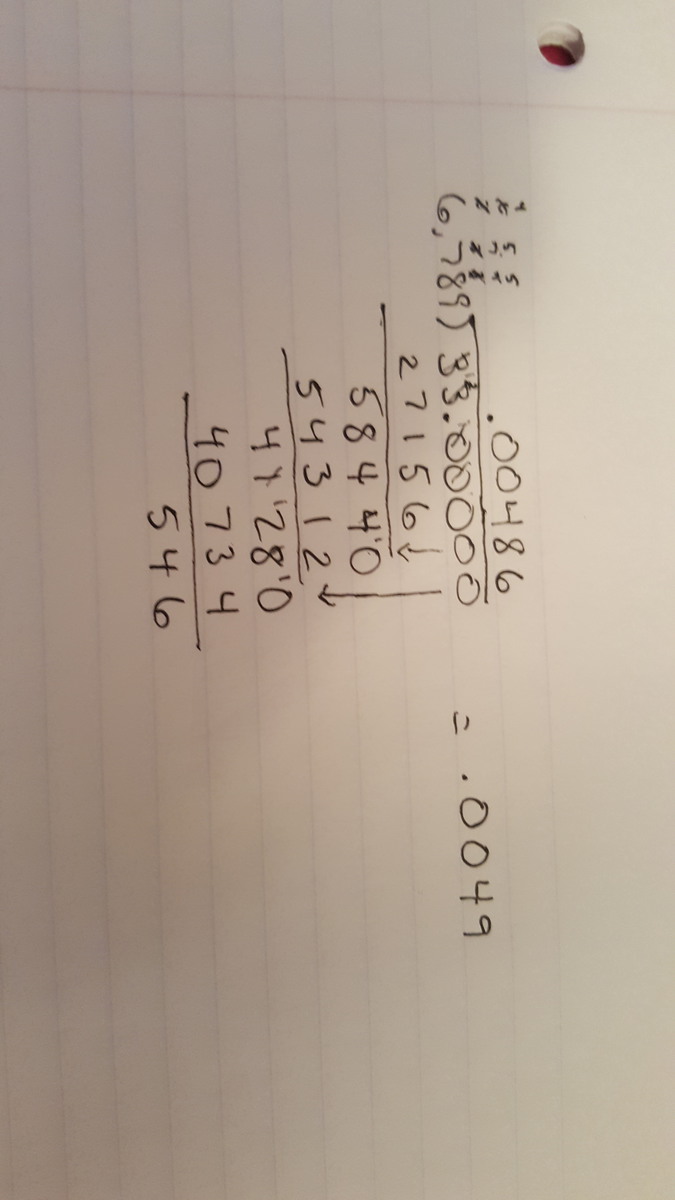 .00486
6,789)33.00000 = .0049
27156
58440
54312
41280
40734
546